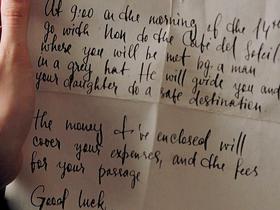 At 9:00 in the morning of the 14
go with Mon do the Cafe del Soleil
where you will be met by a man
in a grey hat. He will guide you and
your daughter do a safe destination.
the money I've enclosed will
cover your expenses, and the fees
for your passage
Good luck